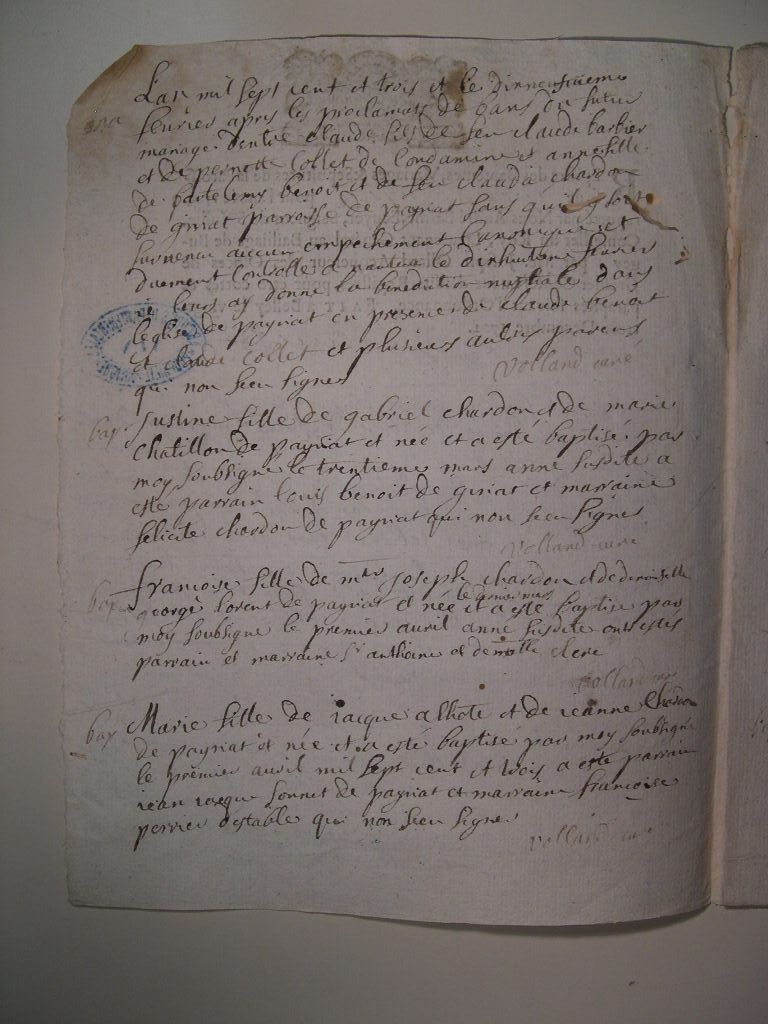 L'an mil sept cent et trois et le dixneufuieme
feurier apres les proclamats de bans du futur
mariage dentre claude fils de feu claude barbier
et de pernette Collet de Condamine et anne fille
de bartelemy benoit et de feu claude chardon
de giriat parroisse de payriat sans quil soit
suruenu aucun empechement Canonique et
duement Controlle a nantua le dixhuitieme feurier
ie leurs ay donne la benediction nuptiale dans
leglise de payriat en presence de claude benoit
et claude Collet et plusieurs aultres parens
qui non sceu signer
Volland curé
bap Justine fille de gabriel chardon et de marie
Chatillon de payriat et née et a esté baptisé par
moy soubsigne le trentieme mars anne susdite a
esté parrain louis benoit de giriat et marraine
felicite chardon de payriat qui non sceu signer
Volland curé
bap francoise fille de mtre joseph chardon et de demoiselle
george lorent de payriat et née et a esté baptisé par
moy soubsigne le premier auril anne susdite ont estés
parrain et marraine Sr anthoine et demolle clere
Volland curé
bap Marie fille de iacque alhote et de ieanne Chardon
de payriat et née et a esté baptisé par moy soubsigné
le premier auril mil sept cent et trois a esté parrain
iean iacque sonnet de payriat et marraine francoise
perrier destables qui non sceu signer
Volland curé